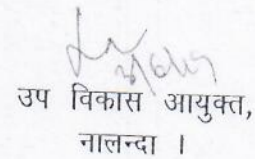 उप विकास आयुक्त,
नालन्दा ।